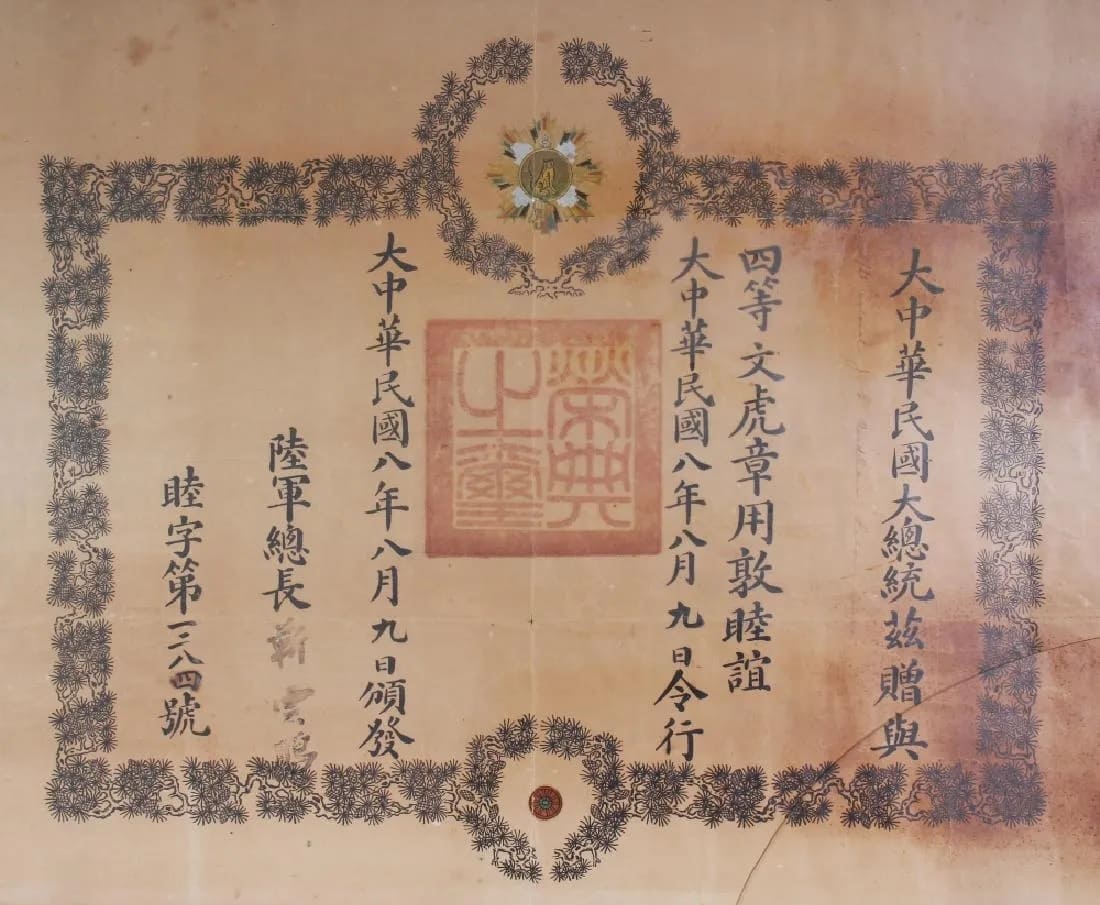 大中華民國大總統茲贈與
四等文虎章用敦睦誼
大中華民國八年八月九日令行
榮典之璽
大中華民國八年八月九日頒發
陸軍總長靳雲鵬
睦字第一三八四號